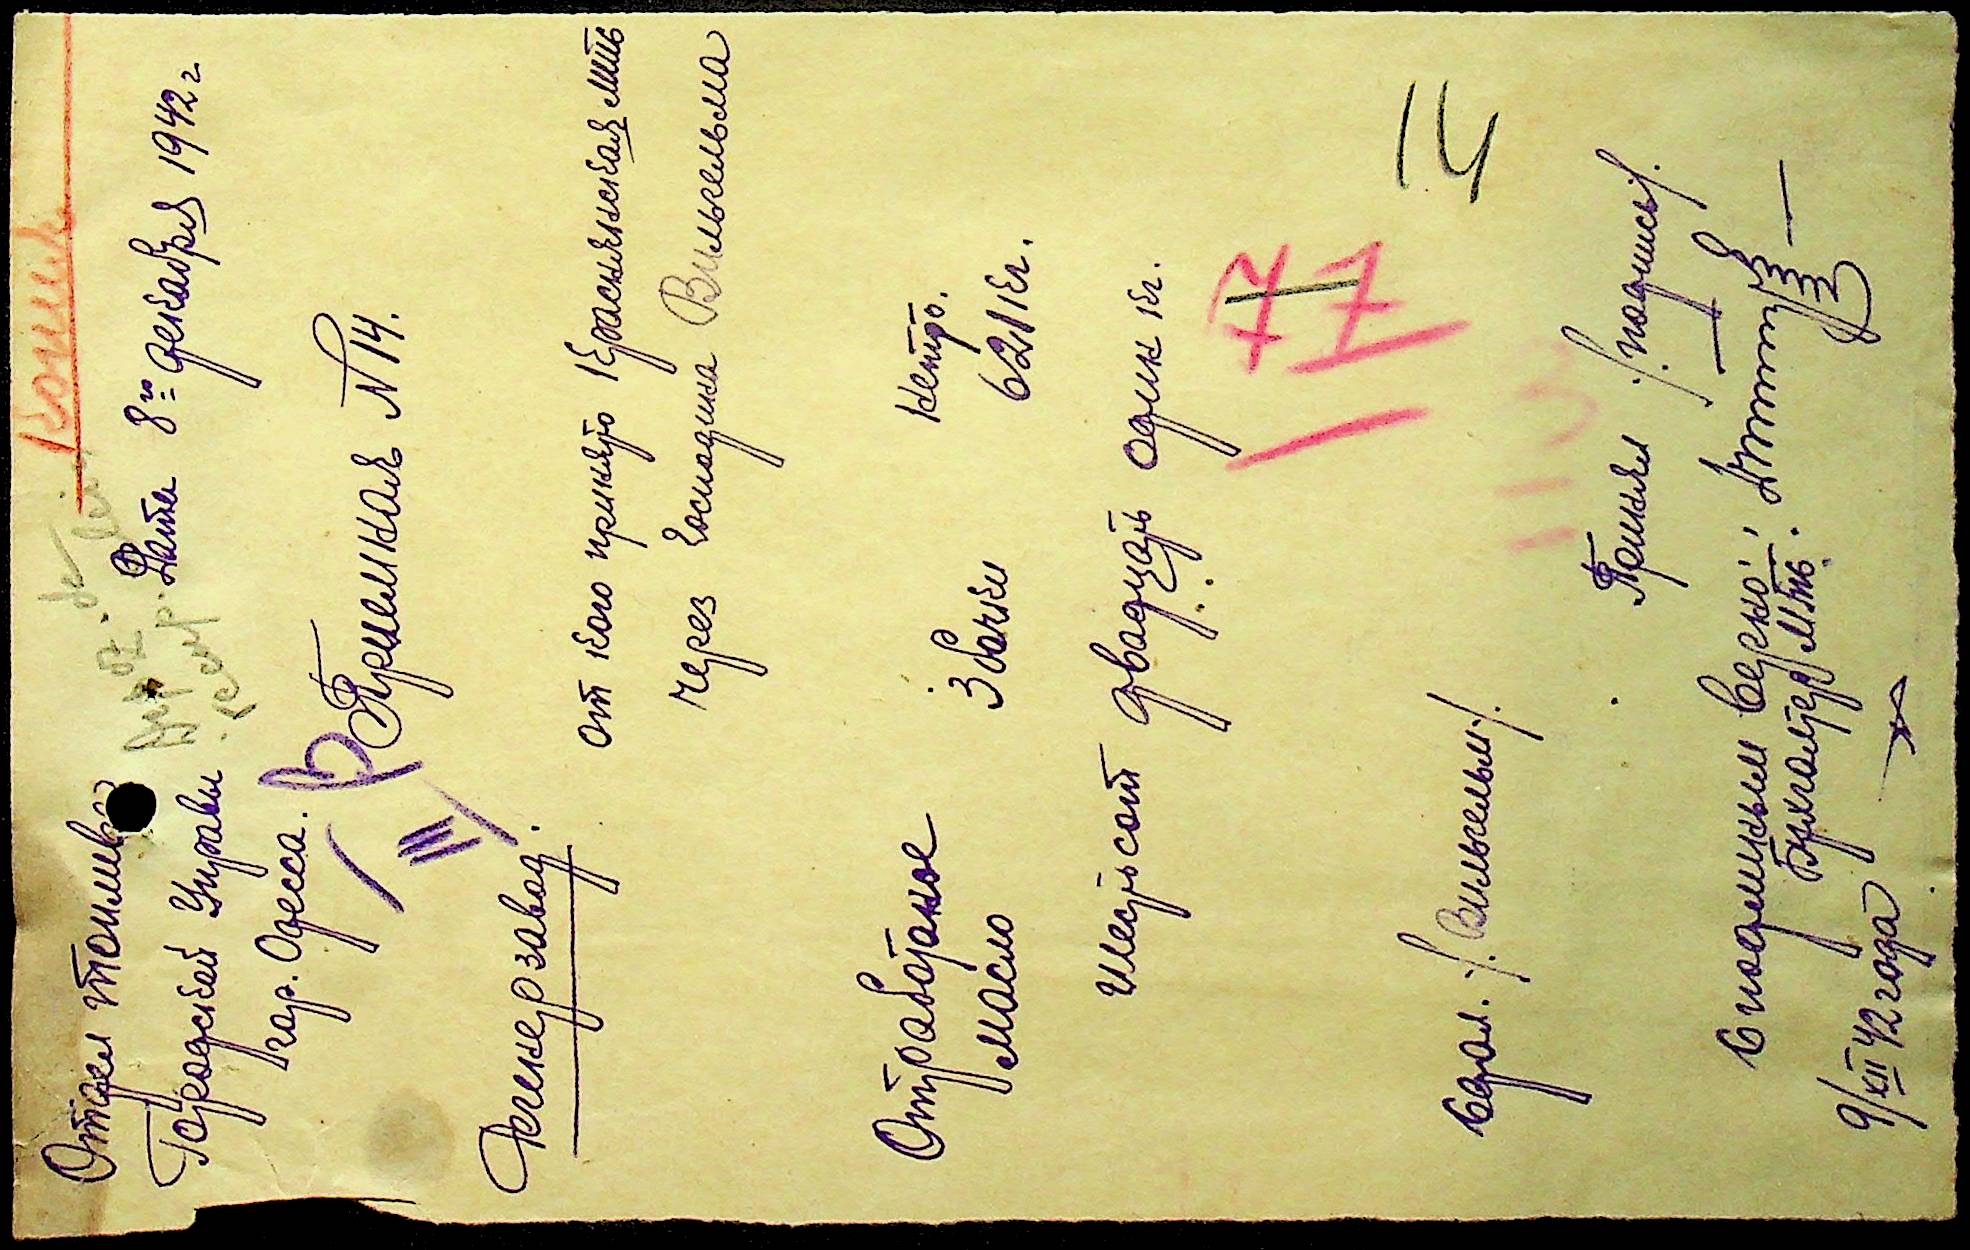 Копия
Отдел топлива
Городской Управы
гор. Одесса.
Дата 8го декабря 1942 г.
Приемная N 14.
Регенерзавод.
от кого принято Краснянская МТС
через господина Вильгельма
Нетто.
Отработаное масло 3 бочки 621 кг.
Шестьсот двадцать один кг.
7
17
14
Сдал. /. Вильгельм /.
Принял /. подпись /.
С подлинным верно:
Бухгалтер МТС.
9/XII 42 года